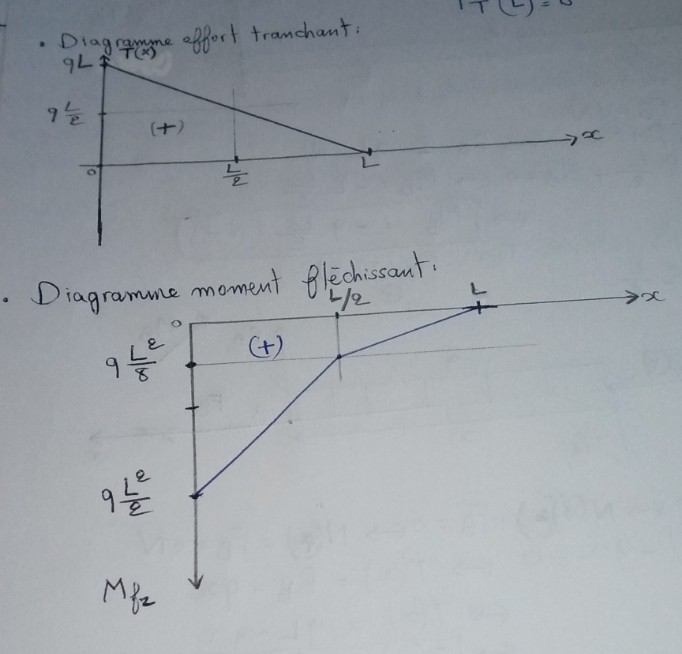 T(L)=0
• Diagramme effort tranchant:
T(x)
qL
q L/2
(+)
x
0
L/2
L
• Diagramme moment fléchissant:
L/2
L
x
0
q L²/8
(+)
q L²/2
Mfz